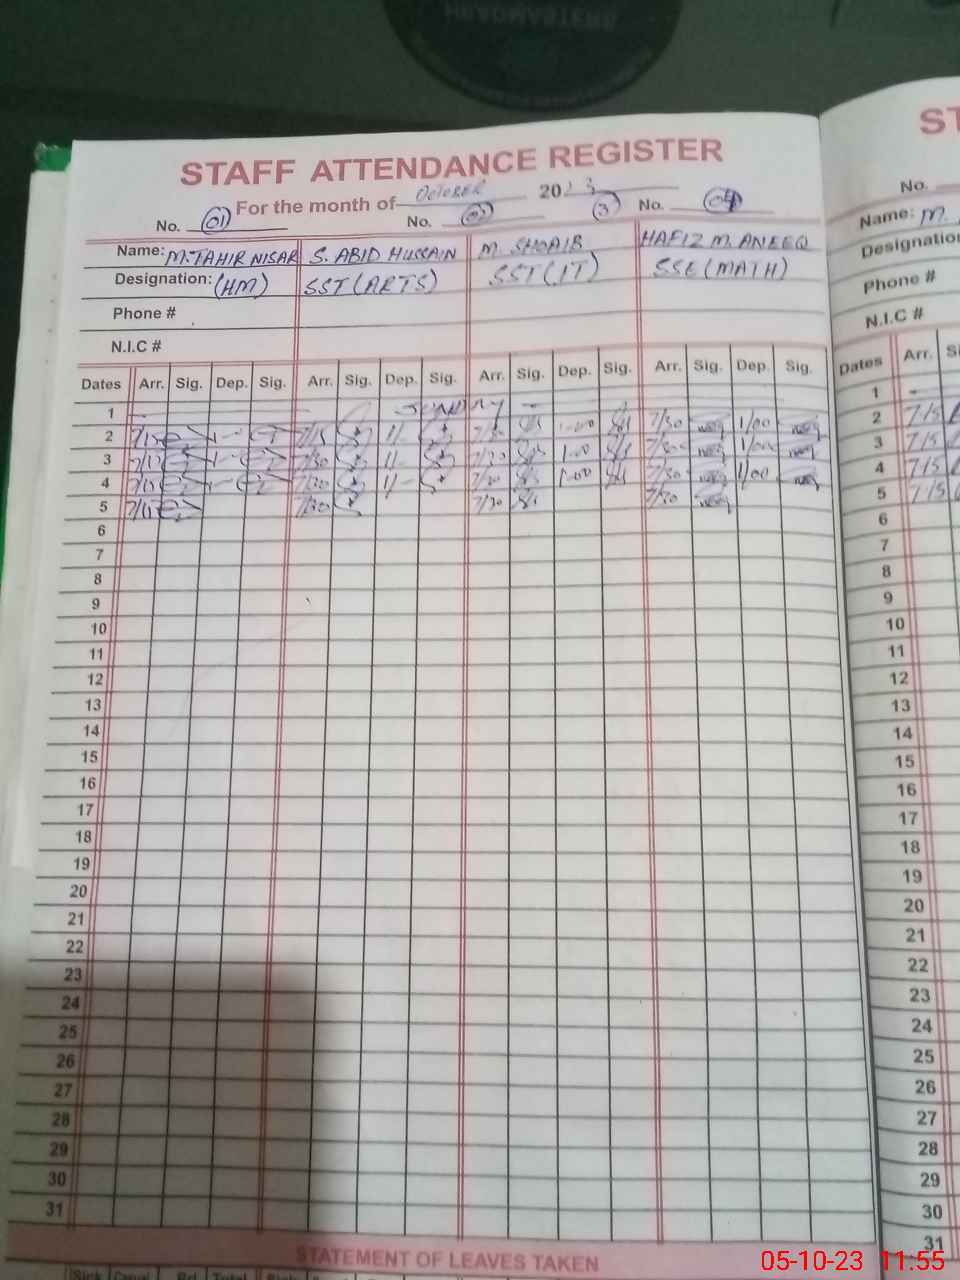 STAFF ATTENDANCE REGISTER
For the month of October 2023
No. 01 No. 3 No. 04
Name: M. TAHIR NISAR S. ABID HUSSAIN M. SHOAIB HAFIZ M. ANEEQ
Designation: (HM) SST (ARTS) SST (IT) SSE (MATH)
Phone #
N.I.C #
Dates Arr. Sig. Dep. Sig. Arr. Sig. Dep. Sig. Arr. Sig. Dep. Sig. Arr. Sig. Dep. Sig.
1 SUNDAY
2 7/15 7/15 7/30 1-00 7/30 1/00
3 7/15 7/30 7/30 1-00 7/30 1/00
4 7/15 7/30 7/30 1-00 7/30 1/00
5 7/15 7/30 7/30 7/30
6
7
8
9
10
11
12
13
14
15
16
17
18
19
20
21
22
23
24
25
26
27
28
29
30
31
STATEMENT OF LEAVES TAKEN
No.
Name: M.
Phone #
N.I.C #
Dates Arr.
1
2 7/15
3 7/15
4 7/15
5 7/15
6
7
8
9
10
11
12
13
14
15
16
17
18
19
20
21
22
23
24
25
26
27
28
29
30
31
05-10-23 11:55